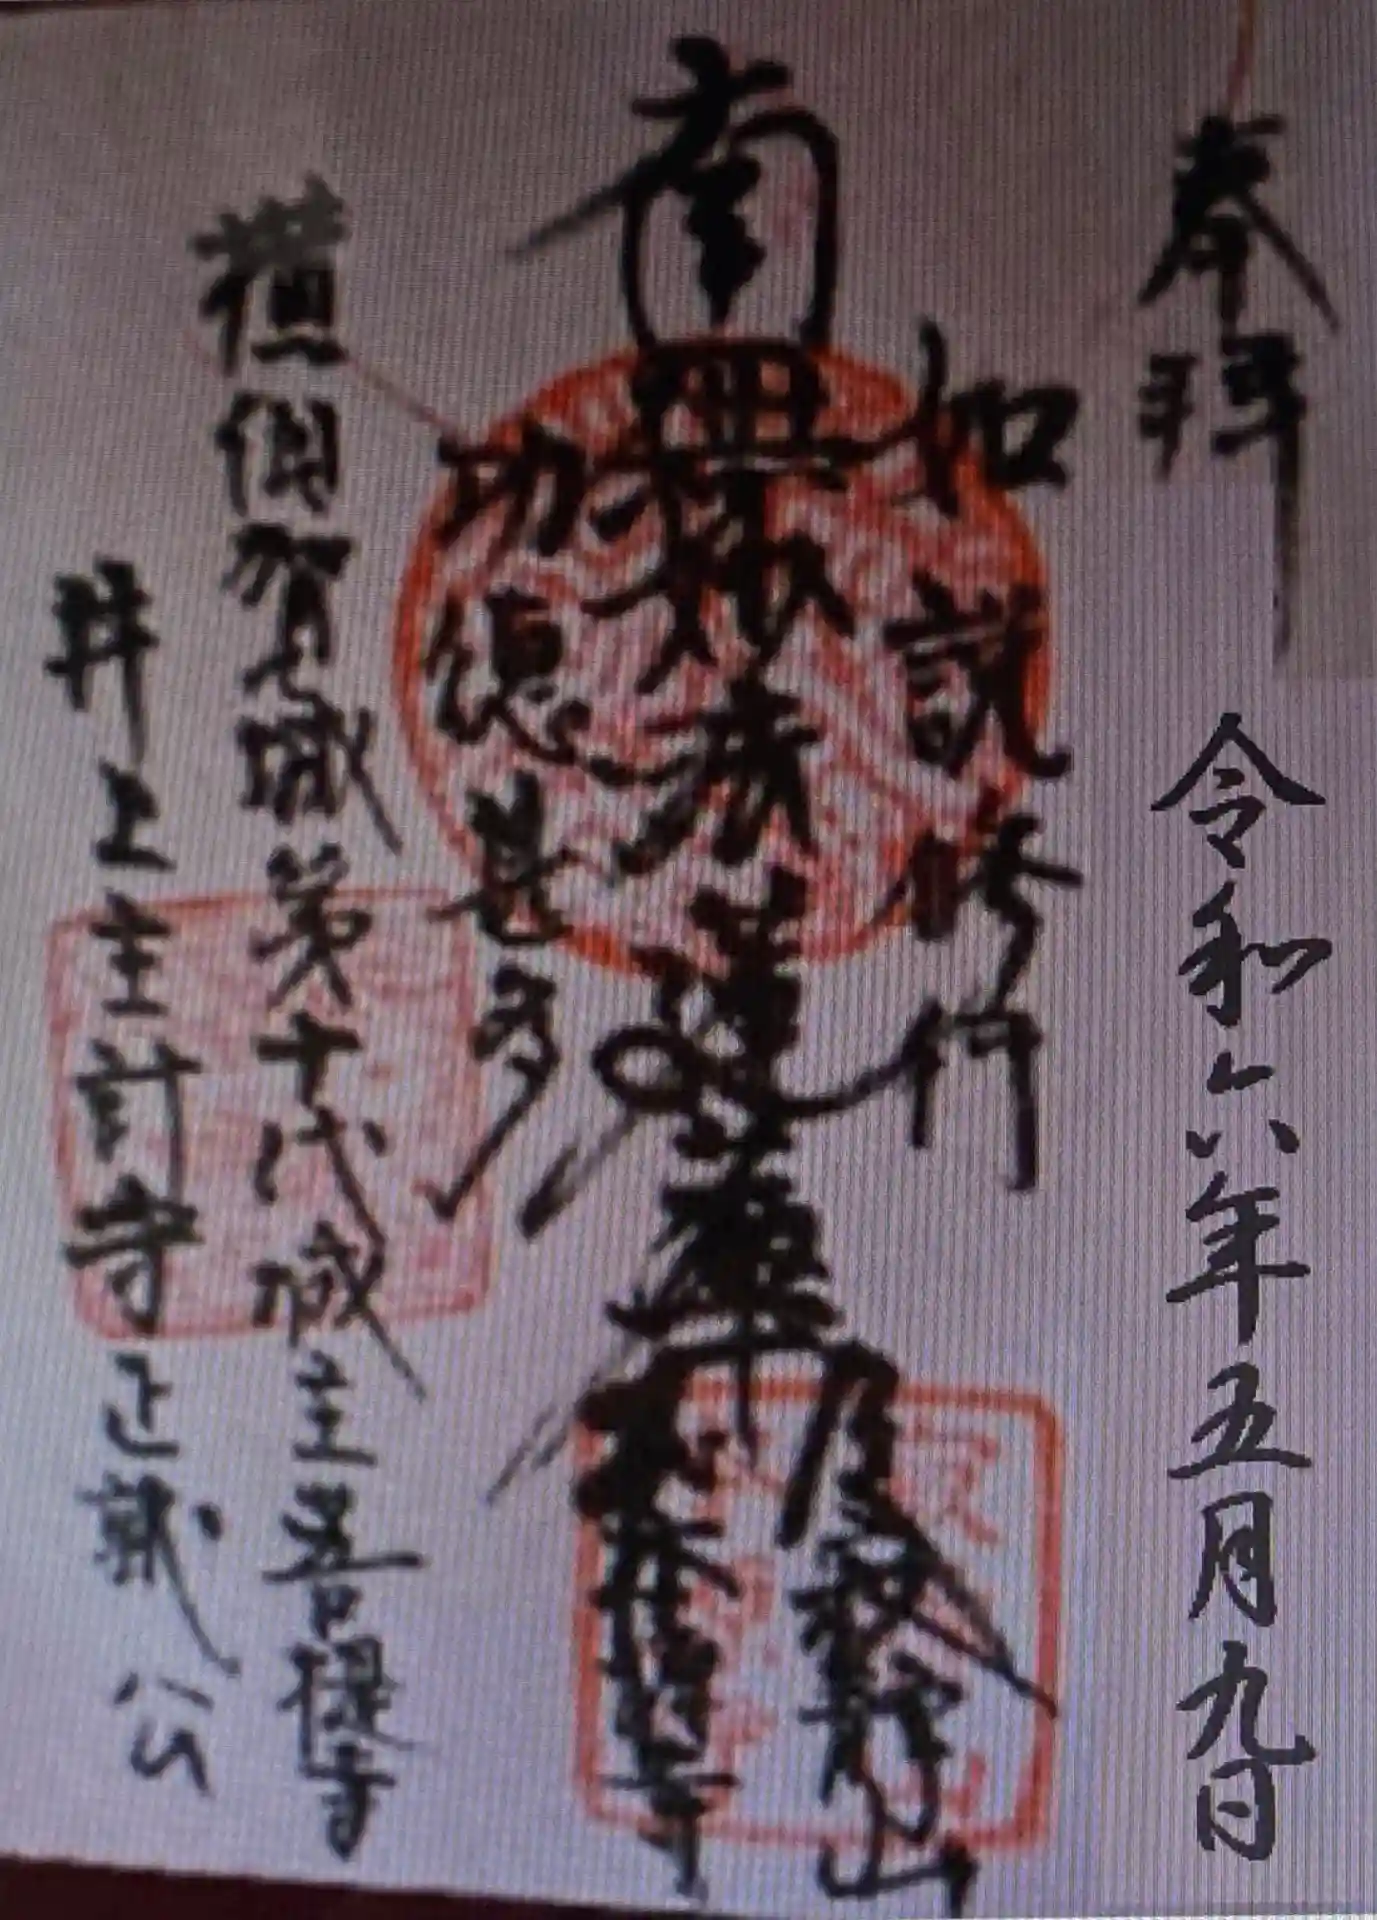 奉拝
令和六年五月九日
如説修行
南無妙法蓮華経
功徳甚多
横須賀城第十代城主菩提寺
井上主計守正就公